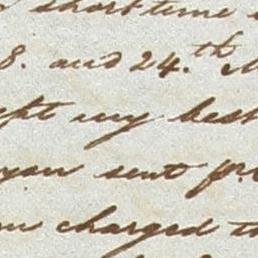 short time
8. and 24.th
my best
you sent
charged